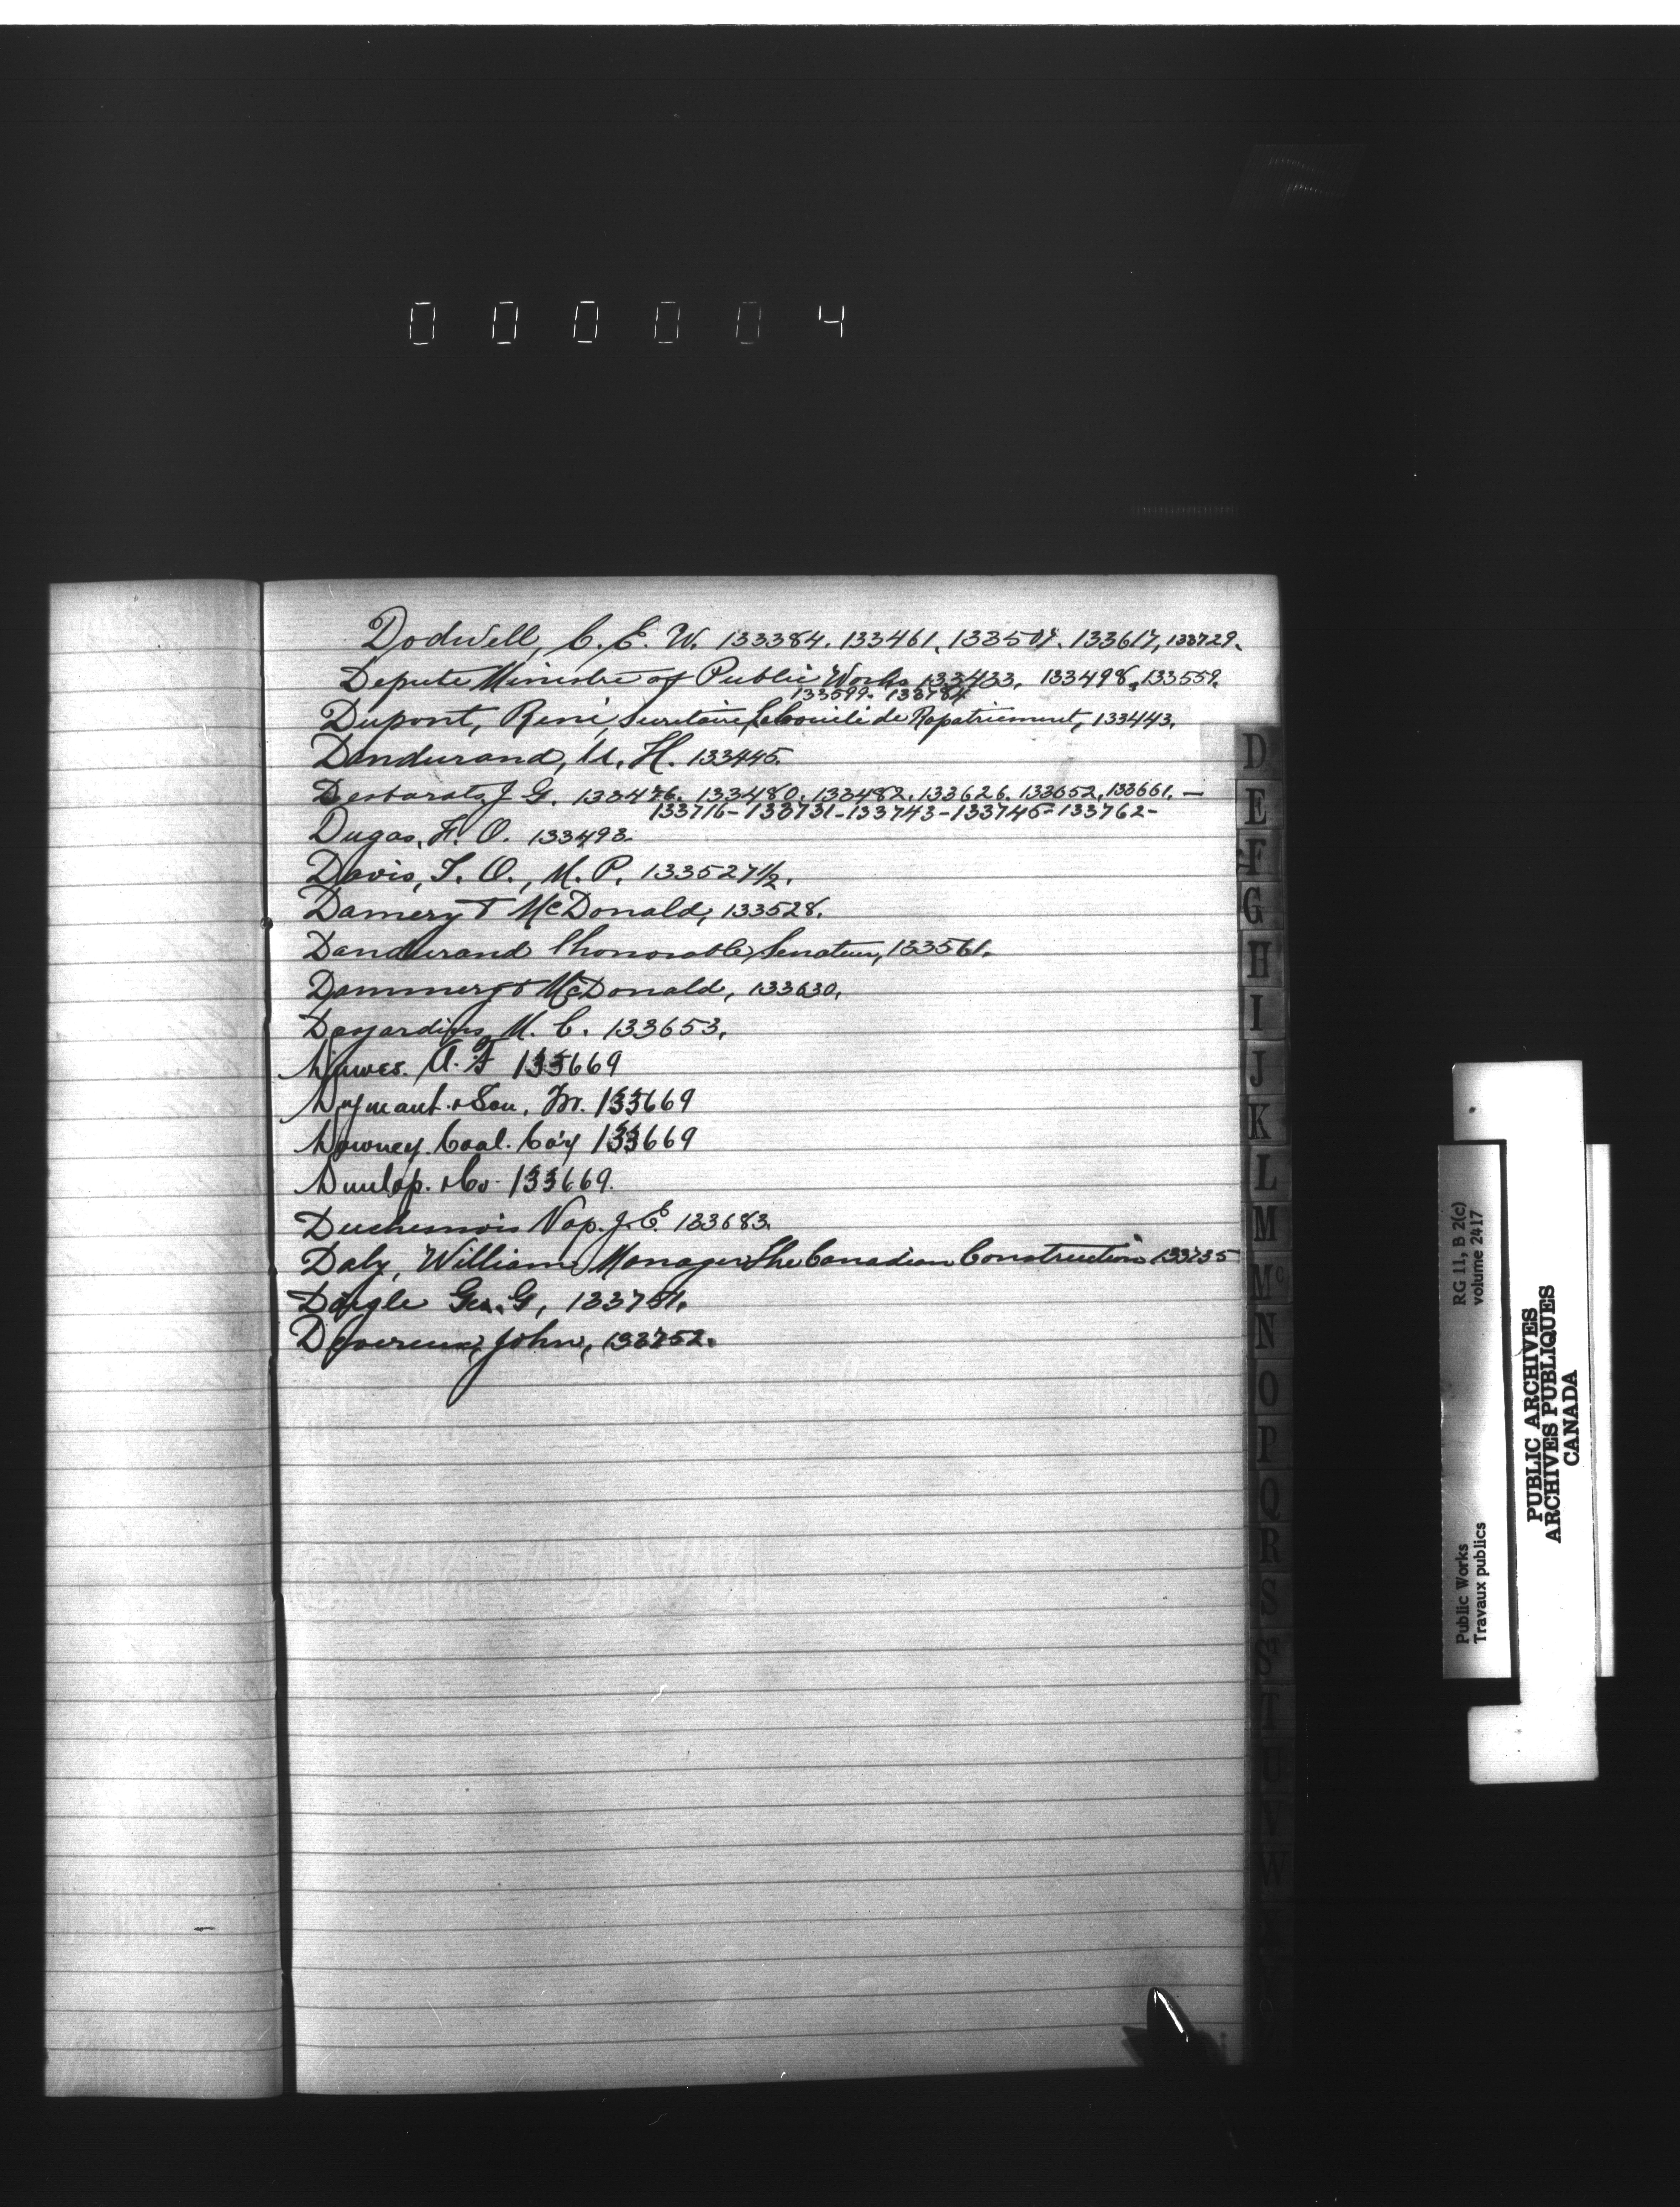 000004
Dodwell, C. E. W. 133384. 133461. 133507. 133617, 133729.
Depute Ministre of Public Works 133433. 133498. 133559.
133599. 133784
Dupont, René, Secretaire, Le Comité de Rapatriement, 133443.
Dandurand, U. H. 133445.
Desbarats, J. G. 133476. 133480. 133482. 133626. 133652. 133661. —
133716-133731-133743-133745-133762-
Dugas, F. O. 133493.
Davis, T. O., M. P. 133527½.
Damery & McDonald, 133528.
Dandurand l'honorable Senateur, 133561.
Dammery & McDonald, 133630.
Desjardins, M. C. 133653.
Dawes. A. F 133669
Dymant & Son, 133669
Downey Coal. Co'y 133669
Dunlop. & Co. 133669.
Nap. J. E. 133683.
Daly, William, Manager The Canadian Construction 133735
Daigle Geo. G, 133751.
Devereux, John, 133752.
D
E
F
G
H
I
J
K
L
M
Mc
N
O
P
Q
R
S
T
U
V
W
Public Works
Travaux publics
RG 11, B 2(c)
volume 2417
PUBLIC ARCHIVES
ARCHIVES PUBLIQUES
CANADA